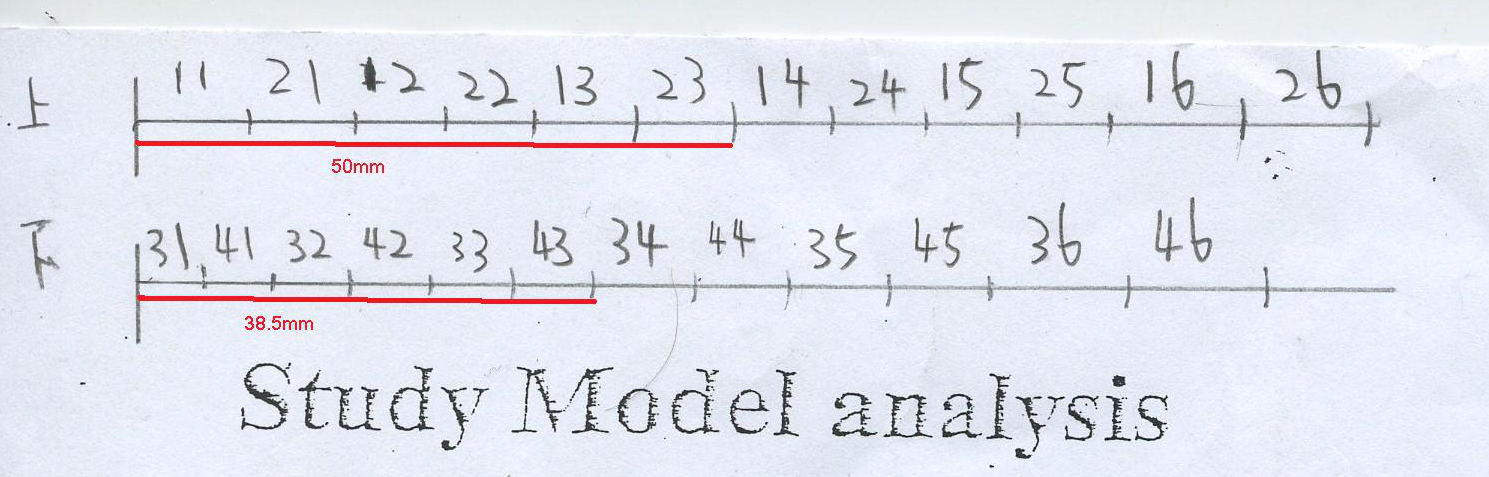 上 11 21 12 22 13 23 14 24 15 25 16 26
50mm
下 31 41 32 42 33 43 34 44 35 45 36 46
38.5mm
Study Model analysis